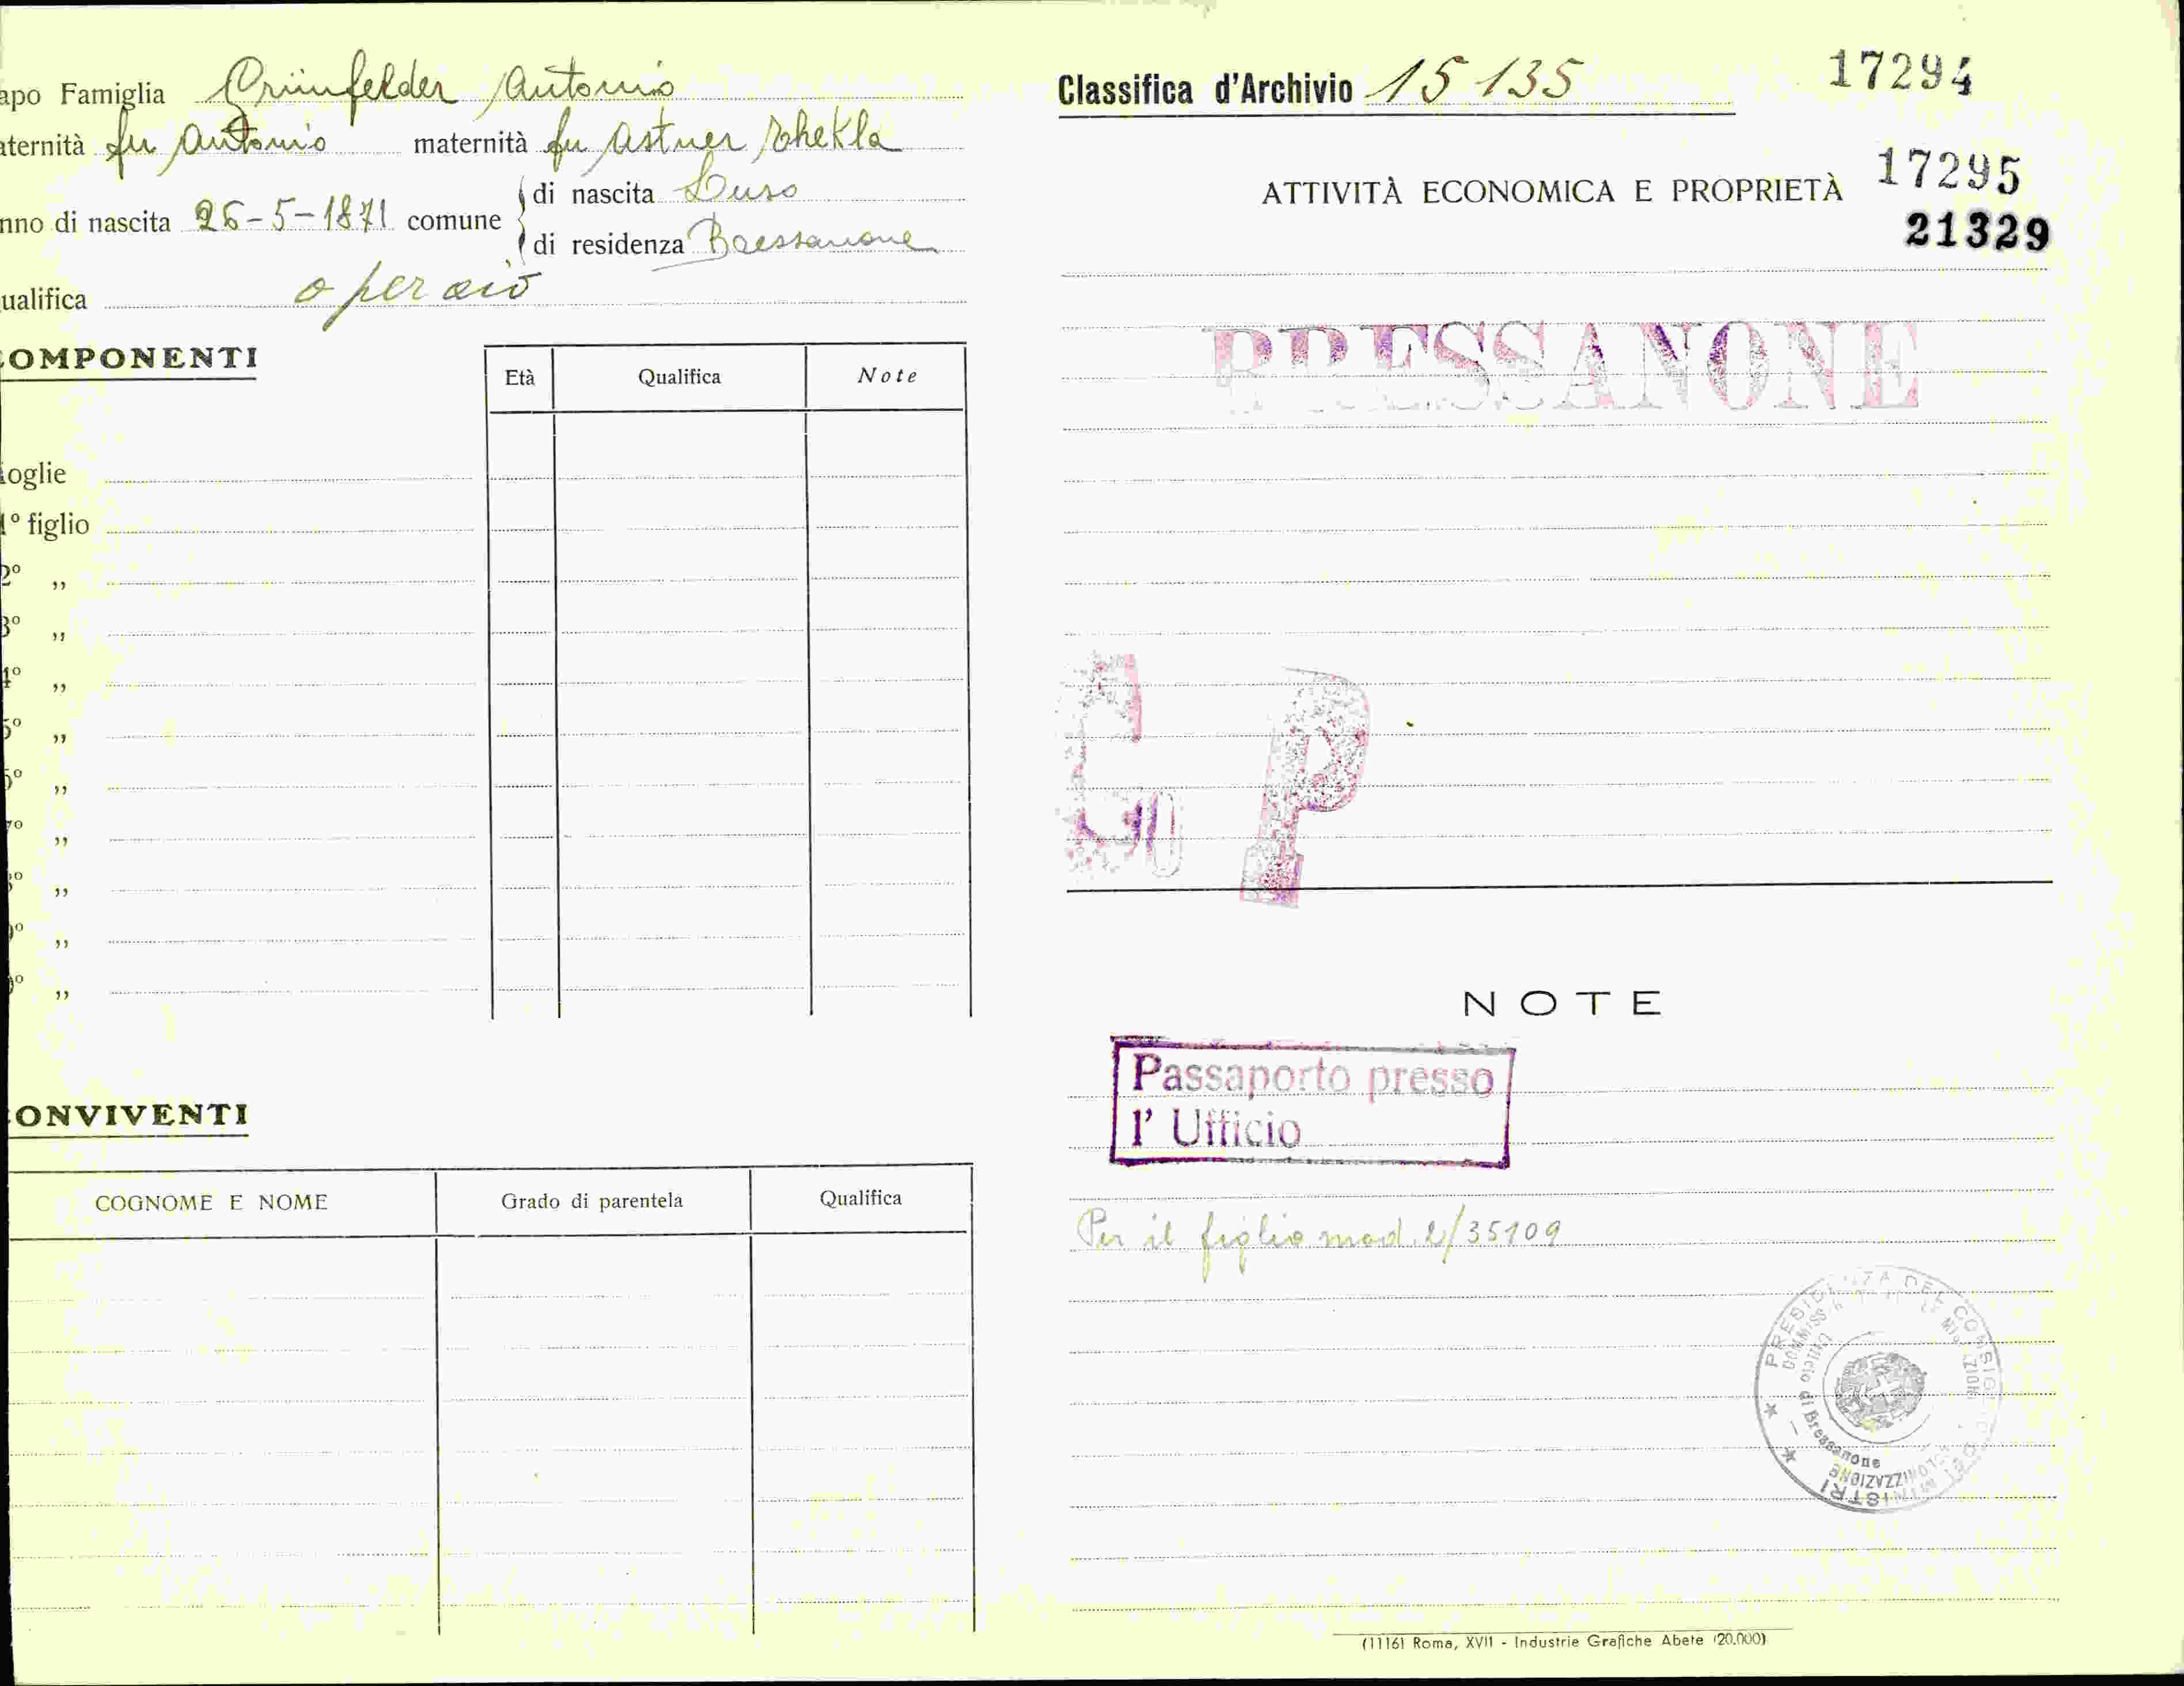 apo Famiglia Grünfelder Antonio
aternità fu Antonio maternità fu Astner Thekla
nno di nascita 26-5-1871 comune di nascita Luso
di residenza Bressanone
ualifica operaio
COMPONENTI
Età Qualifica Note
oglie
1º figlio
2º ,,
3º ,,
4º ,,
5º ,,
6º ,,
7º ,,
8º ,,
9º ,,
0º ,,
CONVIVENTI
COGNOME E NOME Grado di parentela Qualifica
Classifica d'Archivio 15135 17294
ATTIVITÀ ECONOMICA E PROPRIETÀ 17295
21329
BRESSANONE
P
NOTE
Passaporto presso
l' Ufficio
Per il figlio mod. 2/35109
PRESIDENZA DEL CONSIGLIO DEI MINISTRI
Ufficio di Bressanone
(11161 Roma, XVII - Industrie Grafiche Abete (20.000)